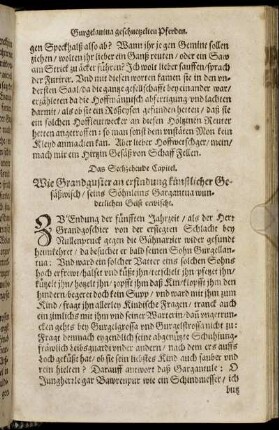 Gurgelawina geschwetzelten Pferden.
gen Speckhalß also ab? Wann ihr je gen Gemine sollen
ziehen / wolten ihr lieber ein Ganß reuten / oder ein Saw
am Strick zu äcker führen? Ich wolt lieber sauffen / sprach
der Furirer. Vnd mit disen worten kamen sie in den vn-
dersten Saal / da die gantze gesellschafft bey einander war/
erzähleten da die Hoffmännisch abfertigung vnd lachten
darmit / als ob sie ein
ein solchen Hoffleutwecker an diesen Holtzmen Reuter
hetten angetroffen: so man sonst dem vnstäten Mon kein
Kleyd anmachen kan. Aber lieber Hoffwerschger / mein/
mach mir ein Hertzin Gesäß von Schaff Fellen.
Das Sechzehende Capitel.
Wie Grandgusier an erfindung künstlicher Ge-
säßwisch / seins Söhnleins Gargantua wun-
derlichen Geist erwischt.
ZV Endung der fünfften Jahrzeit / als der Herr
Grandgoschier von der ersiegten Schlacht bey
Rullenpruck gegen die Gähnarier wider gesundt
heimkehrt / da besuchet er bald seinen Sohn Gurgellan-
tua: Vnd ward ein solcher Vatter eins solchen Sohns
hoch erfrowt / halset vnd küßt jhn /
kützelt jhn / hegelt jhn / zopfft jhn daß Kin / klopfft jhn den
hindern begert doch kein Supp / vnd ward mit jhm zum
Kind / fragt jhn allerley Kindische Fragen / tranck auch
ein zimlichs mit jhm vnd seiner Warterin / dañ vngetrun-
cken gehts bey Gurgelgrossa vnd Gurgelstrossa nicht zu:
Fragt demnach eygendlich seine abgenützte
fräwlich Leibsguardi vnder andern / nach dem ers auffs
hoch geküßt hat / ob sie sein liebstes Kind auch sauber vnd
rein hielen? Darauff antwort daß Gargantule: O
Jungherr legar Bawrenpur wie ein Schindmesser / ich
butz